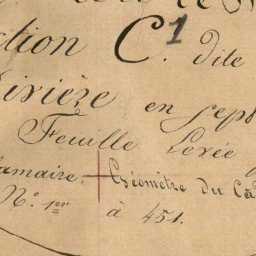 ction C.1 dite
ivière en sept
Feuille Levée
amaire. Géomètre du Ca
N.º 1.er à 451.